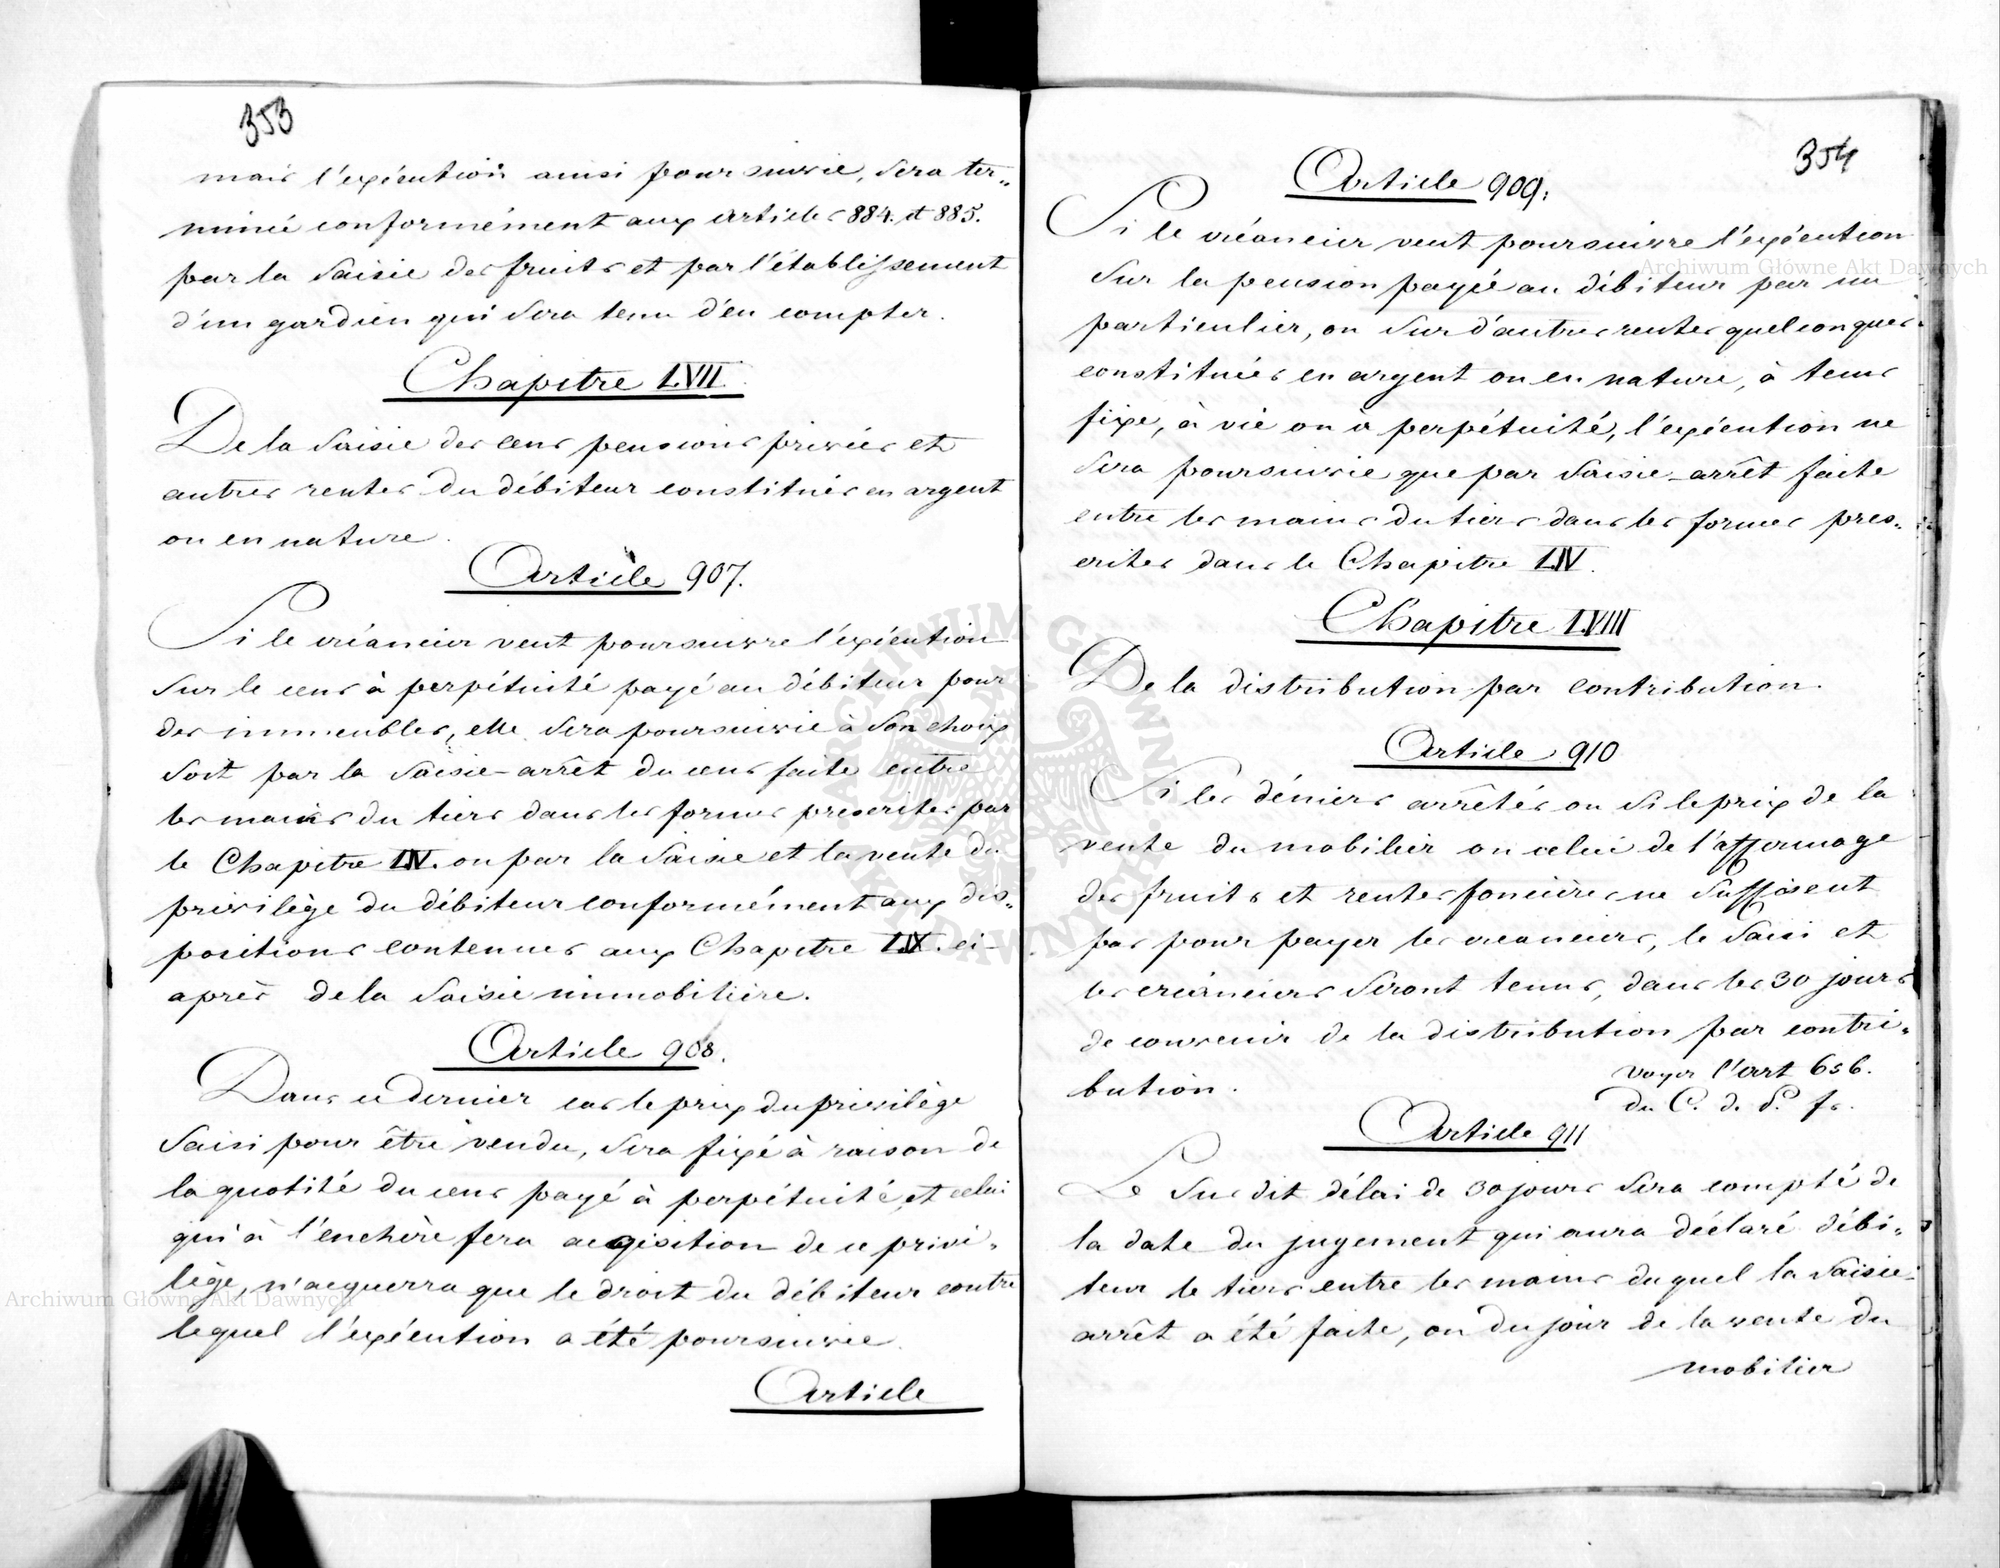 353
mais l'exécution ainsi poursuivie, sera ter„
minée conformément aux articles 884. et 885.
par la saisie des fruits et par l'établissement
d'un gardien qui sera tenu d'en compter.
Chapitre LVII.
De la saisie des cens pensions privées et
autres rentes du débiteur constituées en argent
ou en nature.
Article 907.
Si le créancier veut poursuivre l'exécution
sur le cens à perpétuité payé au débiteur pour
des immeubles, elle sera poursuivie à son choix
soit par la saisie-arrêt du cens faite entre
les mains du tiers dans les formes prescrites par
le Chapitre LIV. ou par la saisie et la vente du
privilège du débiteur conformément aux dis„
positions contenues aux Chapitre LIX. ci-
après de la saisie immobilière.
Article 908.
Dans ce dernier cas le prix du privilège
saisi pour être vendu, sera fixé à raison de
la quotité du cens payé à perpétuité, et celui
qui à l'enchère fera acqisition de ce privi„
lège, n'acquerra que le droit du débiteur contre
lequel l'exécution a été poursuivie.
Article
354
Article 909.
Si le créancier veut poursuivre l'exécution
sur la pension payée au débiteur par un
particulier, ou sur d'autres rentes quelconques
constituées en argent ou en nature, à tems
fixe, à vie ou à perpétuité, l'exécution ne
sera poursuivie que par saisie-arrêt faite
entre les mains du tiers dans les formes pres„
crites dans le Chapitre LIV.
Chapitre LVIII
De la distribution par contribution.
Article 910
Si les déniers arrêtés ou si le prix de la
vente du mobilier ou celui de l'affermage
des fruits et rentes foncières ne suffisent
pas pour payer les créanciers, le saisi et
les créanciers seront tenus, dans les 30 jours
de convenir de la distribution par contri„
bution.
voyez l'art 656.
du C. d. P. fr.
Article 911
Le susdit délai de 30 jours sera compté de
la date du jugement qui aura déclaré débi„
teur le tiers entre les mains duquel la saisie-
arrêt a été faite, ou du jour de la vente du
mobilier
Archiwum Główne Akt Dawnych
Archiwum Główne Akt Dawnych
ARCHIWUM GŁÓWNE AKT DAWNYCH